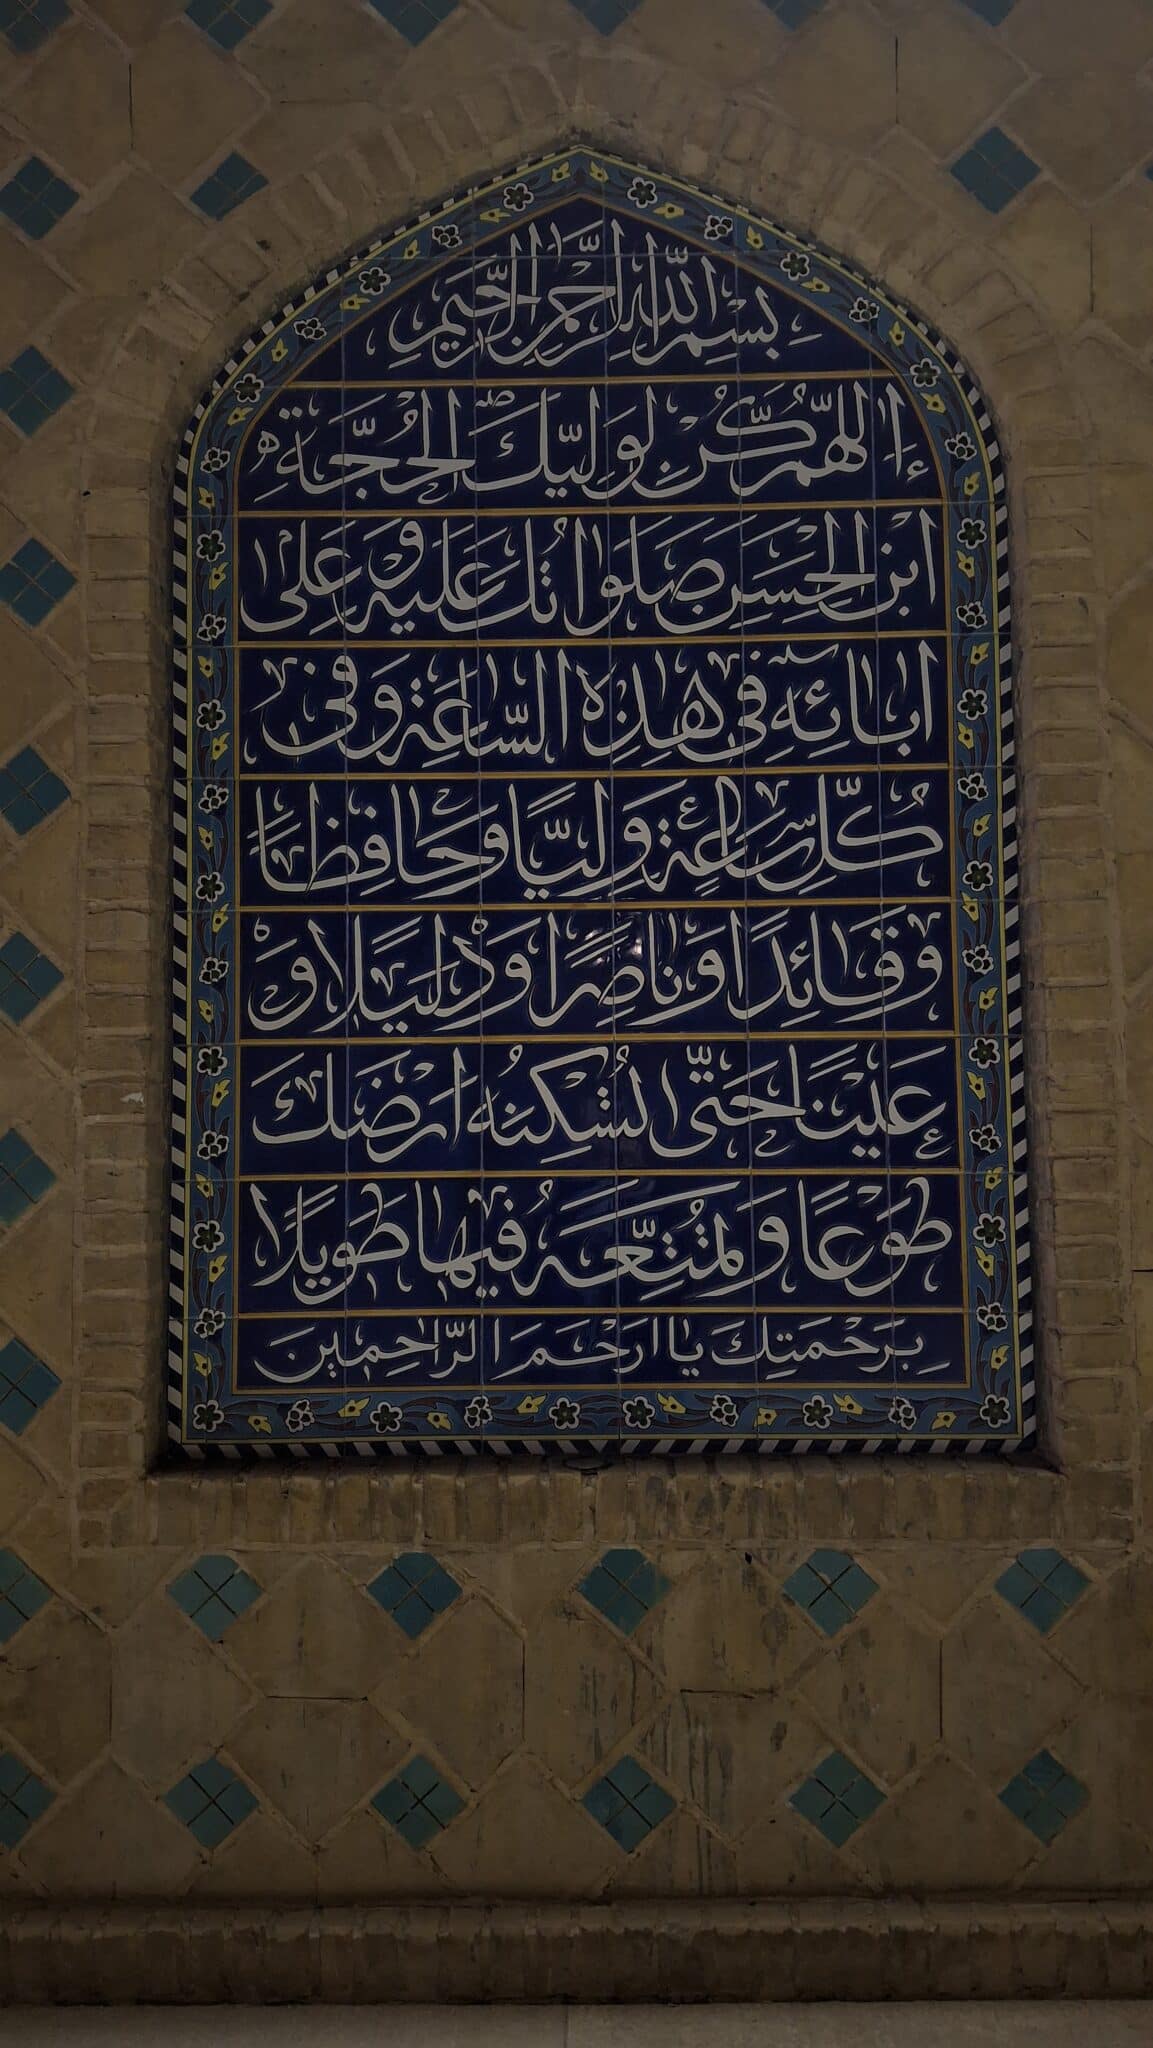 بِسْمِ اللّٰهِ الرَّحْمٰنِ الرَّحِیمِ
اَللّٰهُمَّ كُنْ لِوَلِیِّكَ الْحُجَّةِ
ابْنِ الْحَسَنِ صَلَوٰاتُكَ عَلَیْهِ وَ عَلٰی
اٰبٰائِهِ فِی هٰذِهِ السّٰاعَةِ وَ فِی
كُلِّ سٰاعَةٍ وَلِیًّا وَ حٰافِظًا
وَ قٰائِدًا وَ نٰاصِرًا وَ دَلِیلًا وَ
عَیْنًا حَتّٰی تُسْكِنَهُ اَرْضَكَ
طَوْعًا وَ تُمَتِّعَهُ فِیهٰا طَوِیلًا
بِرَحْمَتِكَ یٰا اَرْحَمَ الرّٰاحِمِینَ